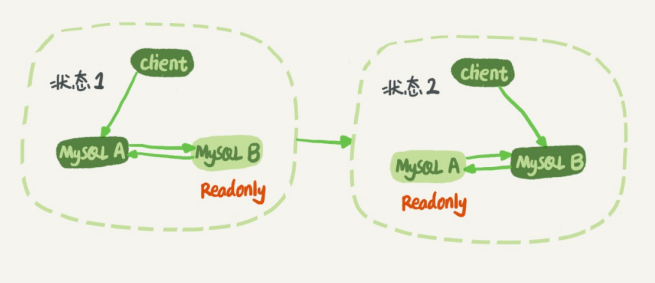 状态1
client
MySQL A
MySQL B
Readonly
状态2
client
MySQL A
MySQL B
Readonly